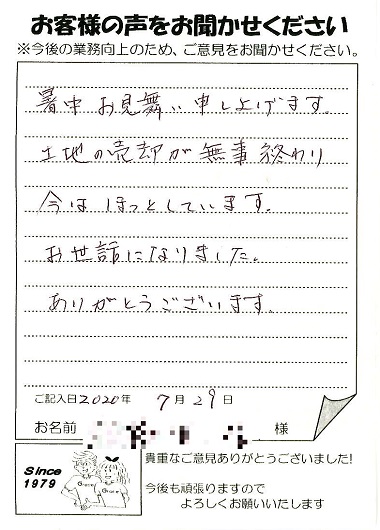 お客様の声をお聞かせください
※今後の業務向上のため、ご意見をお聞かせください。
暑中お見舞い申し上げます。
土地の売却が無事終わり
今はほっとしています。
お世話になりました。
ありがとうございます。
ご記入日2020年 7月29日
お名前 様
Since
1979
貴重なご意見ありがとうございました!
今後も頑張りますので
よろしくお願いいたします